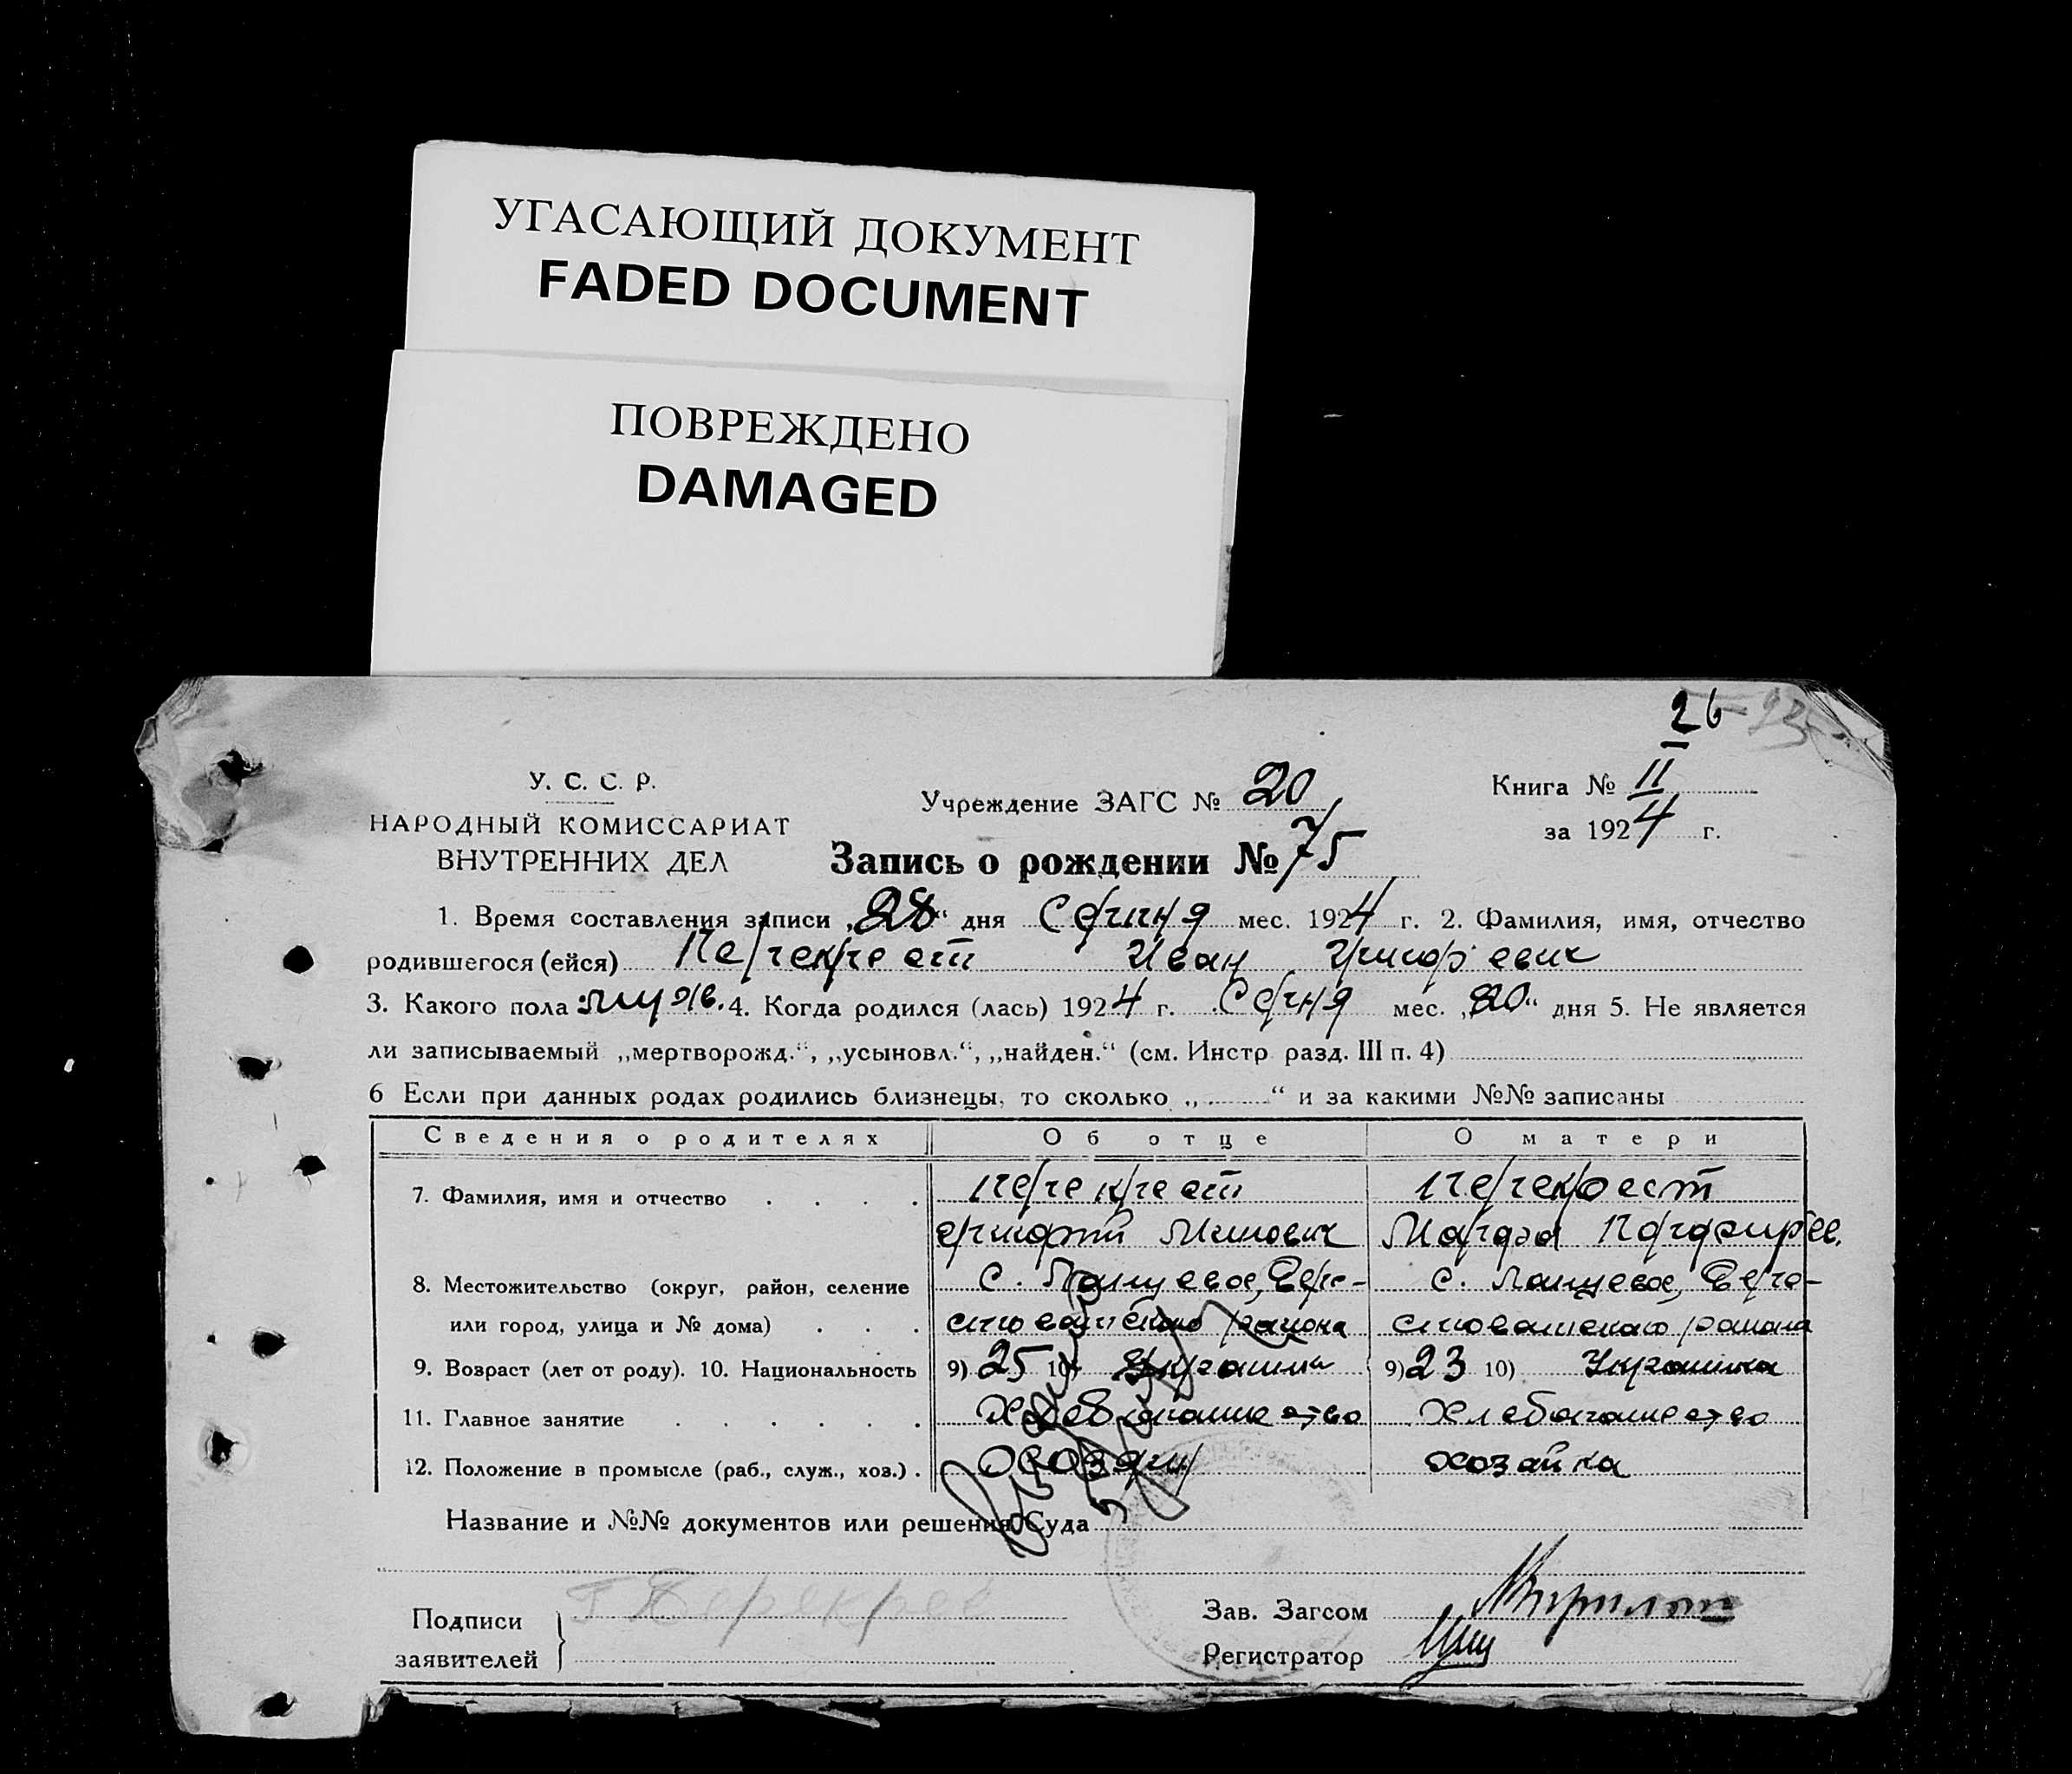 УГАСАЮЩИЙ ДОКУМЕНТ
FADED DOCUMENT
ПОВРЕЖДЕНО
DAMAGED
26
У. С. С. Р.
НАРОДНЫЙ КОМИССАРИАТ
ВНУТРЕННИХ ДЕЛ
Учреждение ЗАГС № 20
Книга № II
за 1924 г.
Запись о рождении № 75
1. Время составления записи „28“ дня мес. 1924 г. 2. Фамилия, имя, отчество
родившегося (ейся) Перекрест Иван Григорьевич
3. Какого пола муж. 4. Когда родился (лась) 1924 г. мес. „20“ дня 5. Не является
ли записываемый „мертворожд.“, „усыновл.“, „найден.“ (см. Инстр. разд. III п. 4)
6 Если при данных родах родились близнецы, то сколько „ “ и за какими №№ записаны
Сведения о родителях Об отце О матери
7. Фамилия, имя и отчество Перекрест Перекрест
8. Местожительство (округ, район, селение с. с.
или город, улица и № дома) района района
9. Возраст (лет от роду). 10. Национальность 9) 25 10) 9) 23 10) Украинка
11. Главное занятие Хлебопашество Хлебопашество
12. Положение в промысле (раб., служ., хоз.) хозяин хозайка
Название и №№ документов или решения Суда
Подписи
заявителей
Зав. Загсом
Регистратор